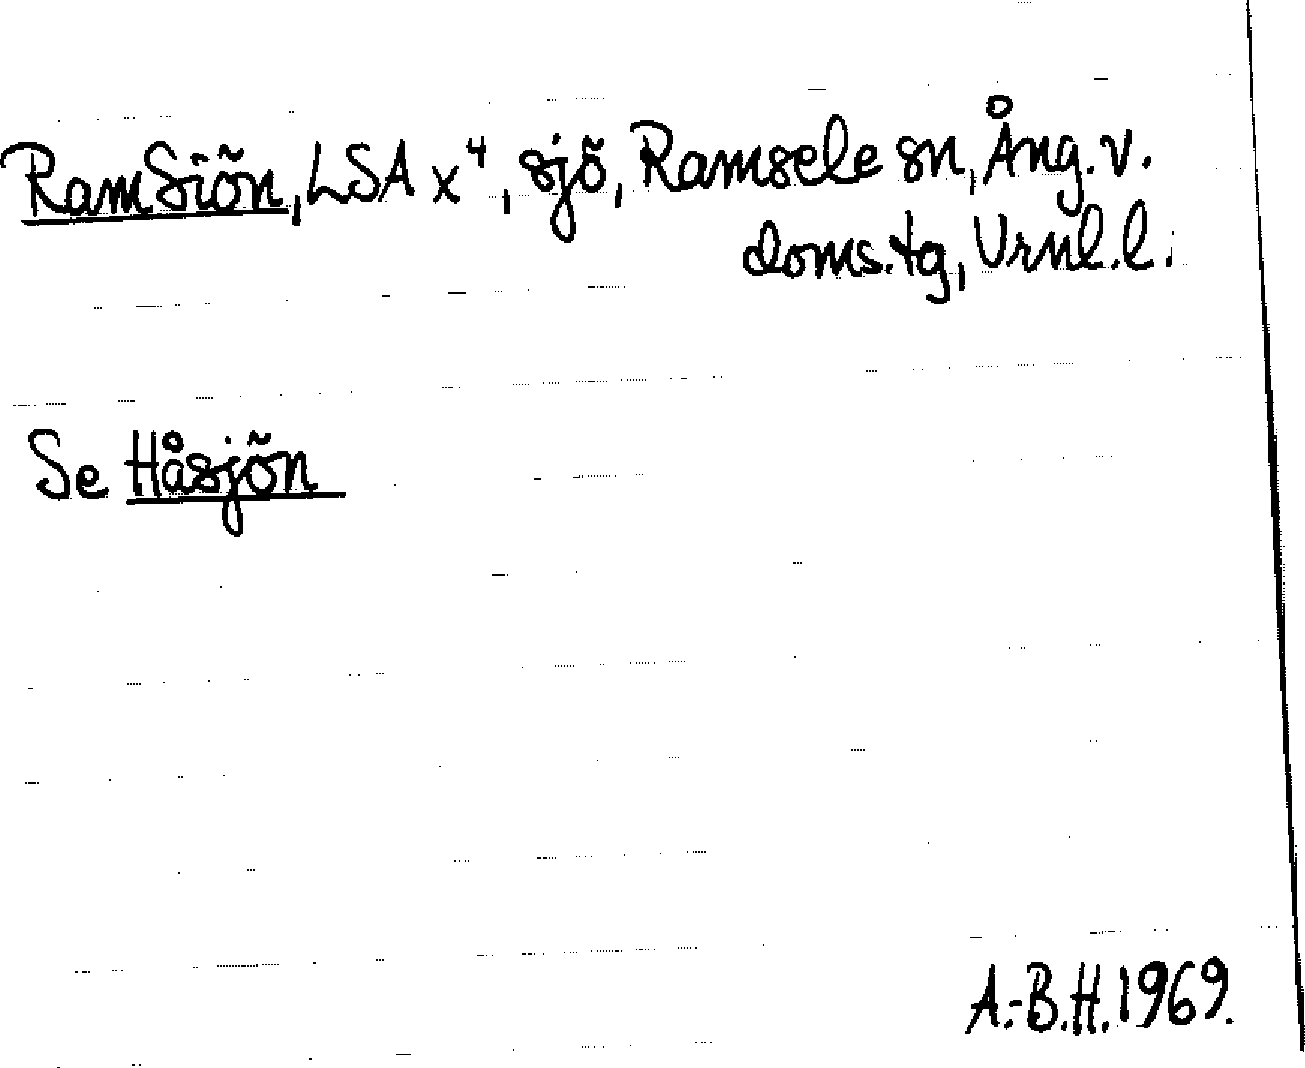 RamSiön, LSA x⁴, sjö, Ramsele sn, Ång. v.
doms.tg, Vrnl.l.
Se Håsjön
A.-B.H. 1969.